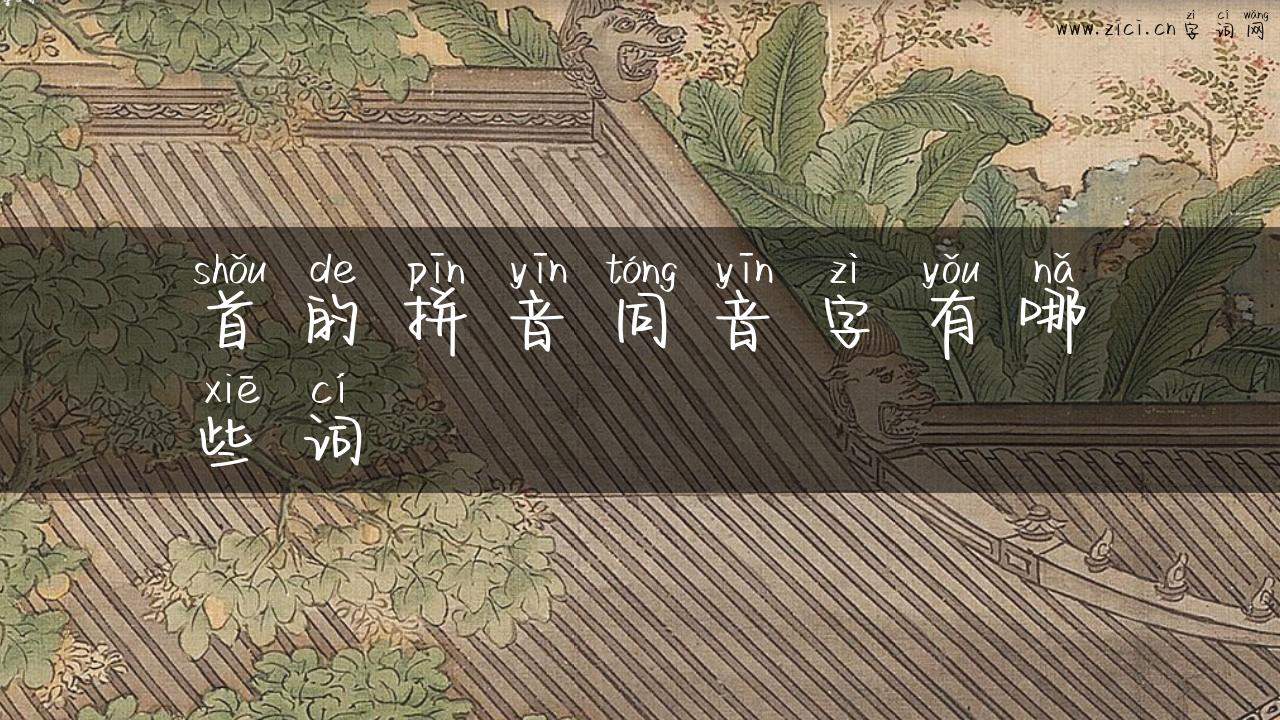 zì cí wǎng
www.zici.cn 字 词 网
shǒu de pīn yīn tóng yīn zì yǒu nǎ
首 的 拼 音 同 音 字 有 哪
xiē cí
些 词